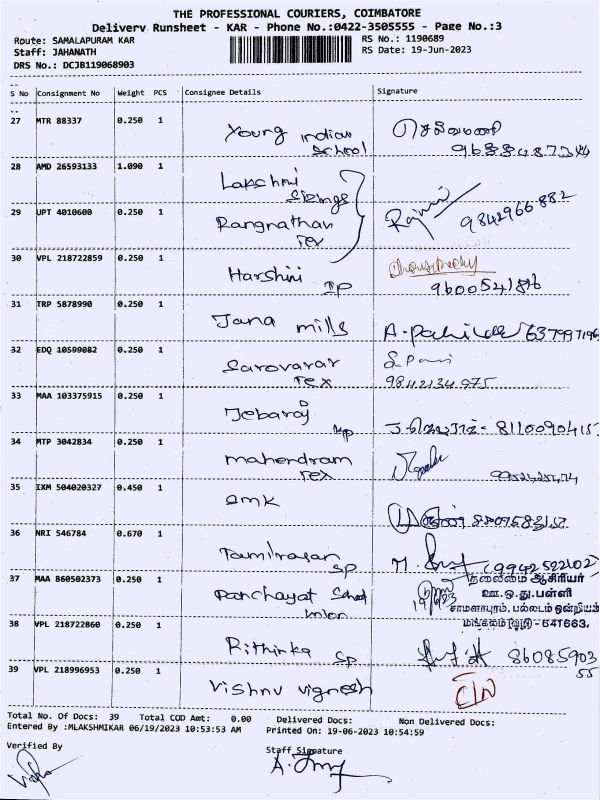 THE PROFESSIONAL COURIERS, COIMBATORE
Delivery Runsheet - KAR - Phone No.:0422-3505555 - Page No.:3
Route: SAMALAPURAM KAR
RS No.: 1190689
Staff: JAHANATH
RS Date: 19-Jun-2023
DRS No.: DCJB119068903
S No Consignment No Weight PCS Consignee Details Signature
27 MTR 88337 0.250 1
Young indian
School
செல்வமணி
28 AMD 26593133 1.090 1
Lakshmi
Sizings
29 UPT 4010600 0.250 1
Rangnathan
Tex
9842966882
30 VPL 218722859 0.250 1
Harshini
31 TRP 5878990 0.250 1
Jana mills
32 EDQ 10599082 0.250 1
Sarovarar
Tex
9842134975
33 MAA 103375915 0.250 1
Jebaraj
34 MTP 3042834 0.250 1
mahendram
Tex
35 IXM 504020327 0.450 1
SMK
36 NRI 546784 0.670 1
Tamilrasan
SP
(9942522102)
37 MAA 860502373 0.250 1
Panchayat School
union
தலைமை ஆசிரியர்
ஊ.ஒ.து.பள்ளி
சாமளாபுரம், பல்லடம் ஒன்றியம்
மங்கலம் (வழி) - 641663.
38 VPL 218722860 0.250 1
Rithinka
SP
8608590355
39 VPL 218996953 0.250 1
Vishnu vignesh
Total No. Of Docs: 39 Total COD Amt: 0.00 Delivered Docs: Non Delivered Docs:
Entered By :MLAKSHMIKAR 06/19/2023 10:53:53 AM Printed On: 19-06-2023 10:54:59
Verified By
Staff Signature